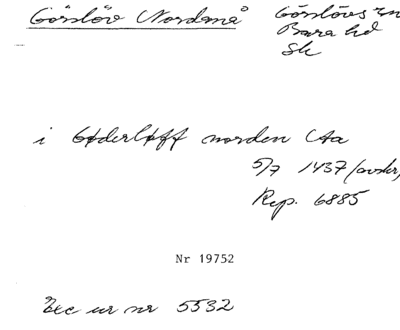 Görslöv Nordanå Görslövs sn
Bara hd
Sk
i Gøderløff norden Aa
5/7 1437 (avskr)
Rep. 6885
Nr 19752
Exc ur nr 5532